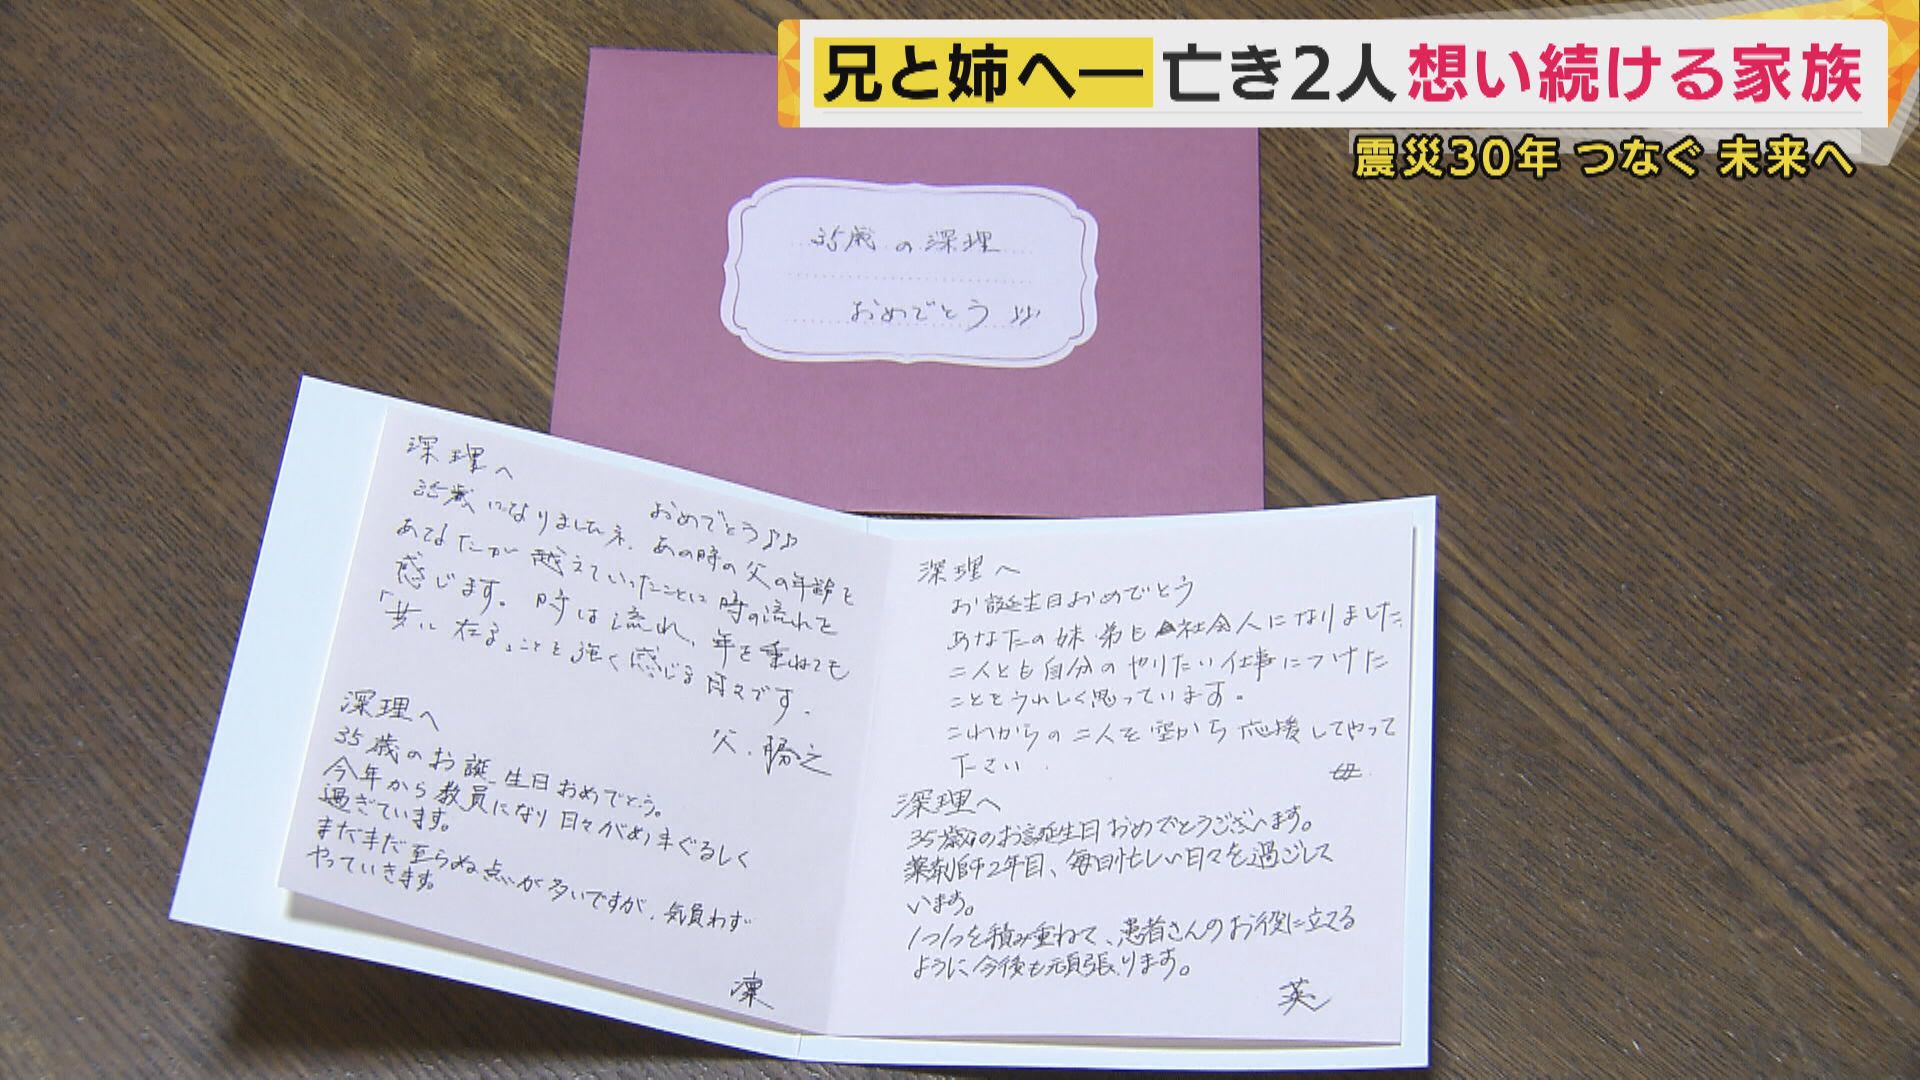 兄と姉へ― 亡き2人 想い続ける家族
震災30年 つなぐ 未来へ
35歳の深理
おめでとう♪♪
深理へ
おめでとう♪♪
35歳になりましたネ。あの時の父の年齢を
あなたが越えていったことに時の流れを
感じます。時は流れ、年を重ねても
「共に在る」ことを強く感じる日々です。
父・勝之
深理へ
35歳のお誕生日おめでとう。
今年から教員になり日々がめまぐるしく
過ぎています。
まだまだ至らぬ点が多いですが、気負わず
やっていきます。
凜
深理へ
お誕生日おめでとう
あなたの妹・弟も社会人になりました
二人とも自分のやりたい仕事につけた
ことをうれしく思っています。
これからの二人を空から応援してやって
下さい.
母
深理へ
35歳のお誕生日おめでとうございます。
薬剤師2年目、毎日忙しい日々を過ごして
います。
1つ1つを積み重ねて、患者さんのお役に立てる
ように今後も頑張ります。
英